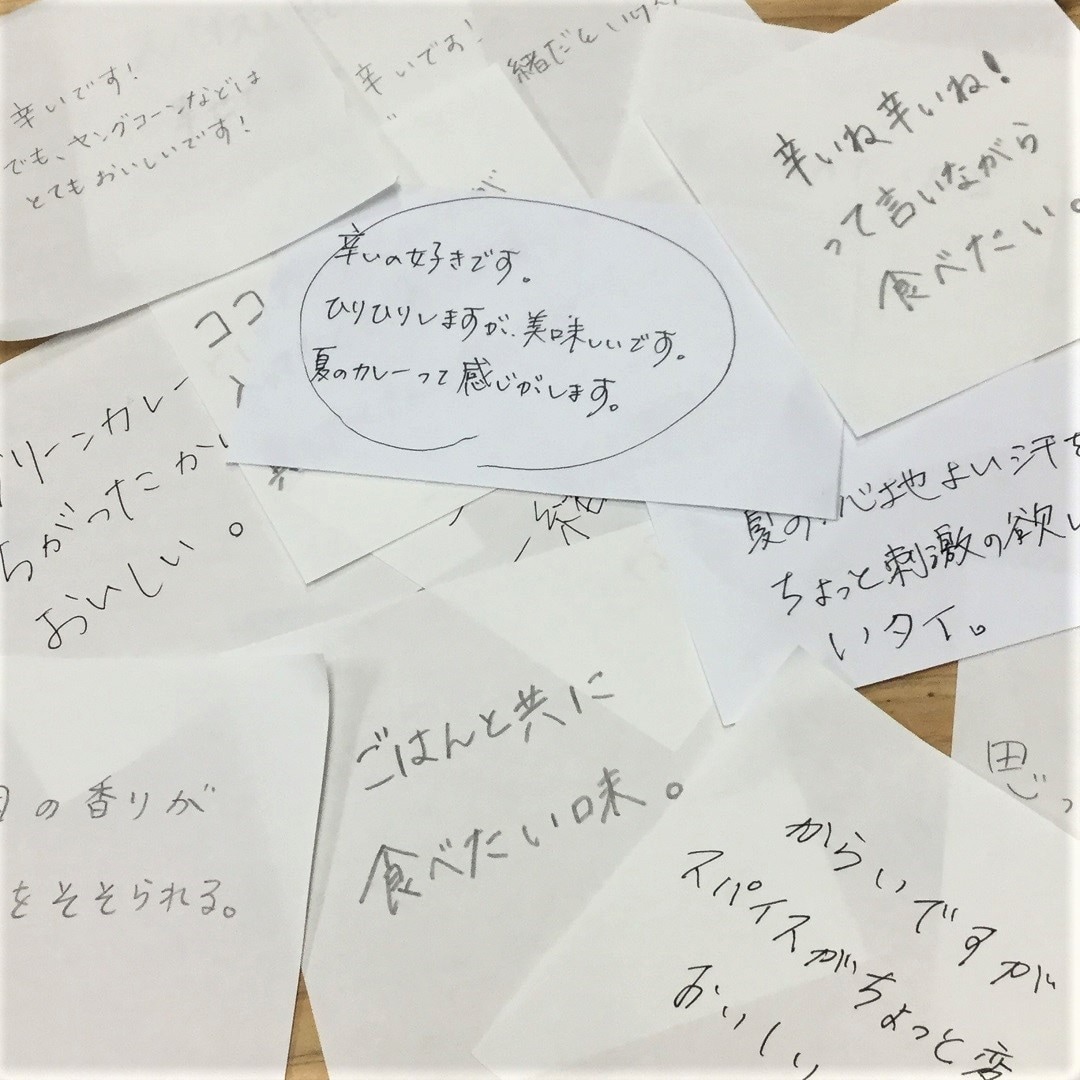 辛いです!
でも、ヤングコーンなどは
とてもおいしいです!
辛いです!
緒だと
辛いね辛いね!
って言いながら
食べたい。
辛いの好きです。
ひりひりしますが、美味しいです。
夏のカレーって感じがします。
ココ
リーンカレー
ちがったか
おいしい。
夏の心地よい汗を
ちょっと刺激の欲し
いタイ。
の香りが
をそそられる。
ごはんと共に
食べたい味。
思っ
からいですが
スパイスがちょっと変
おいし